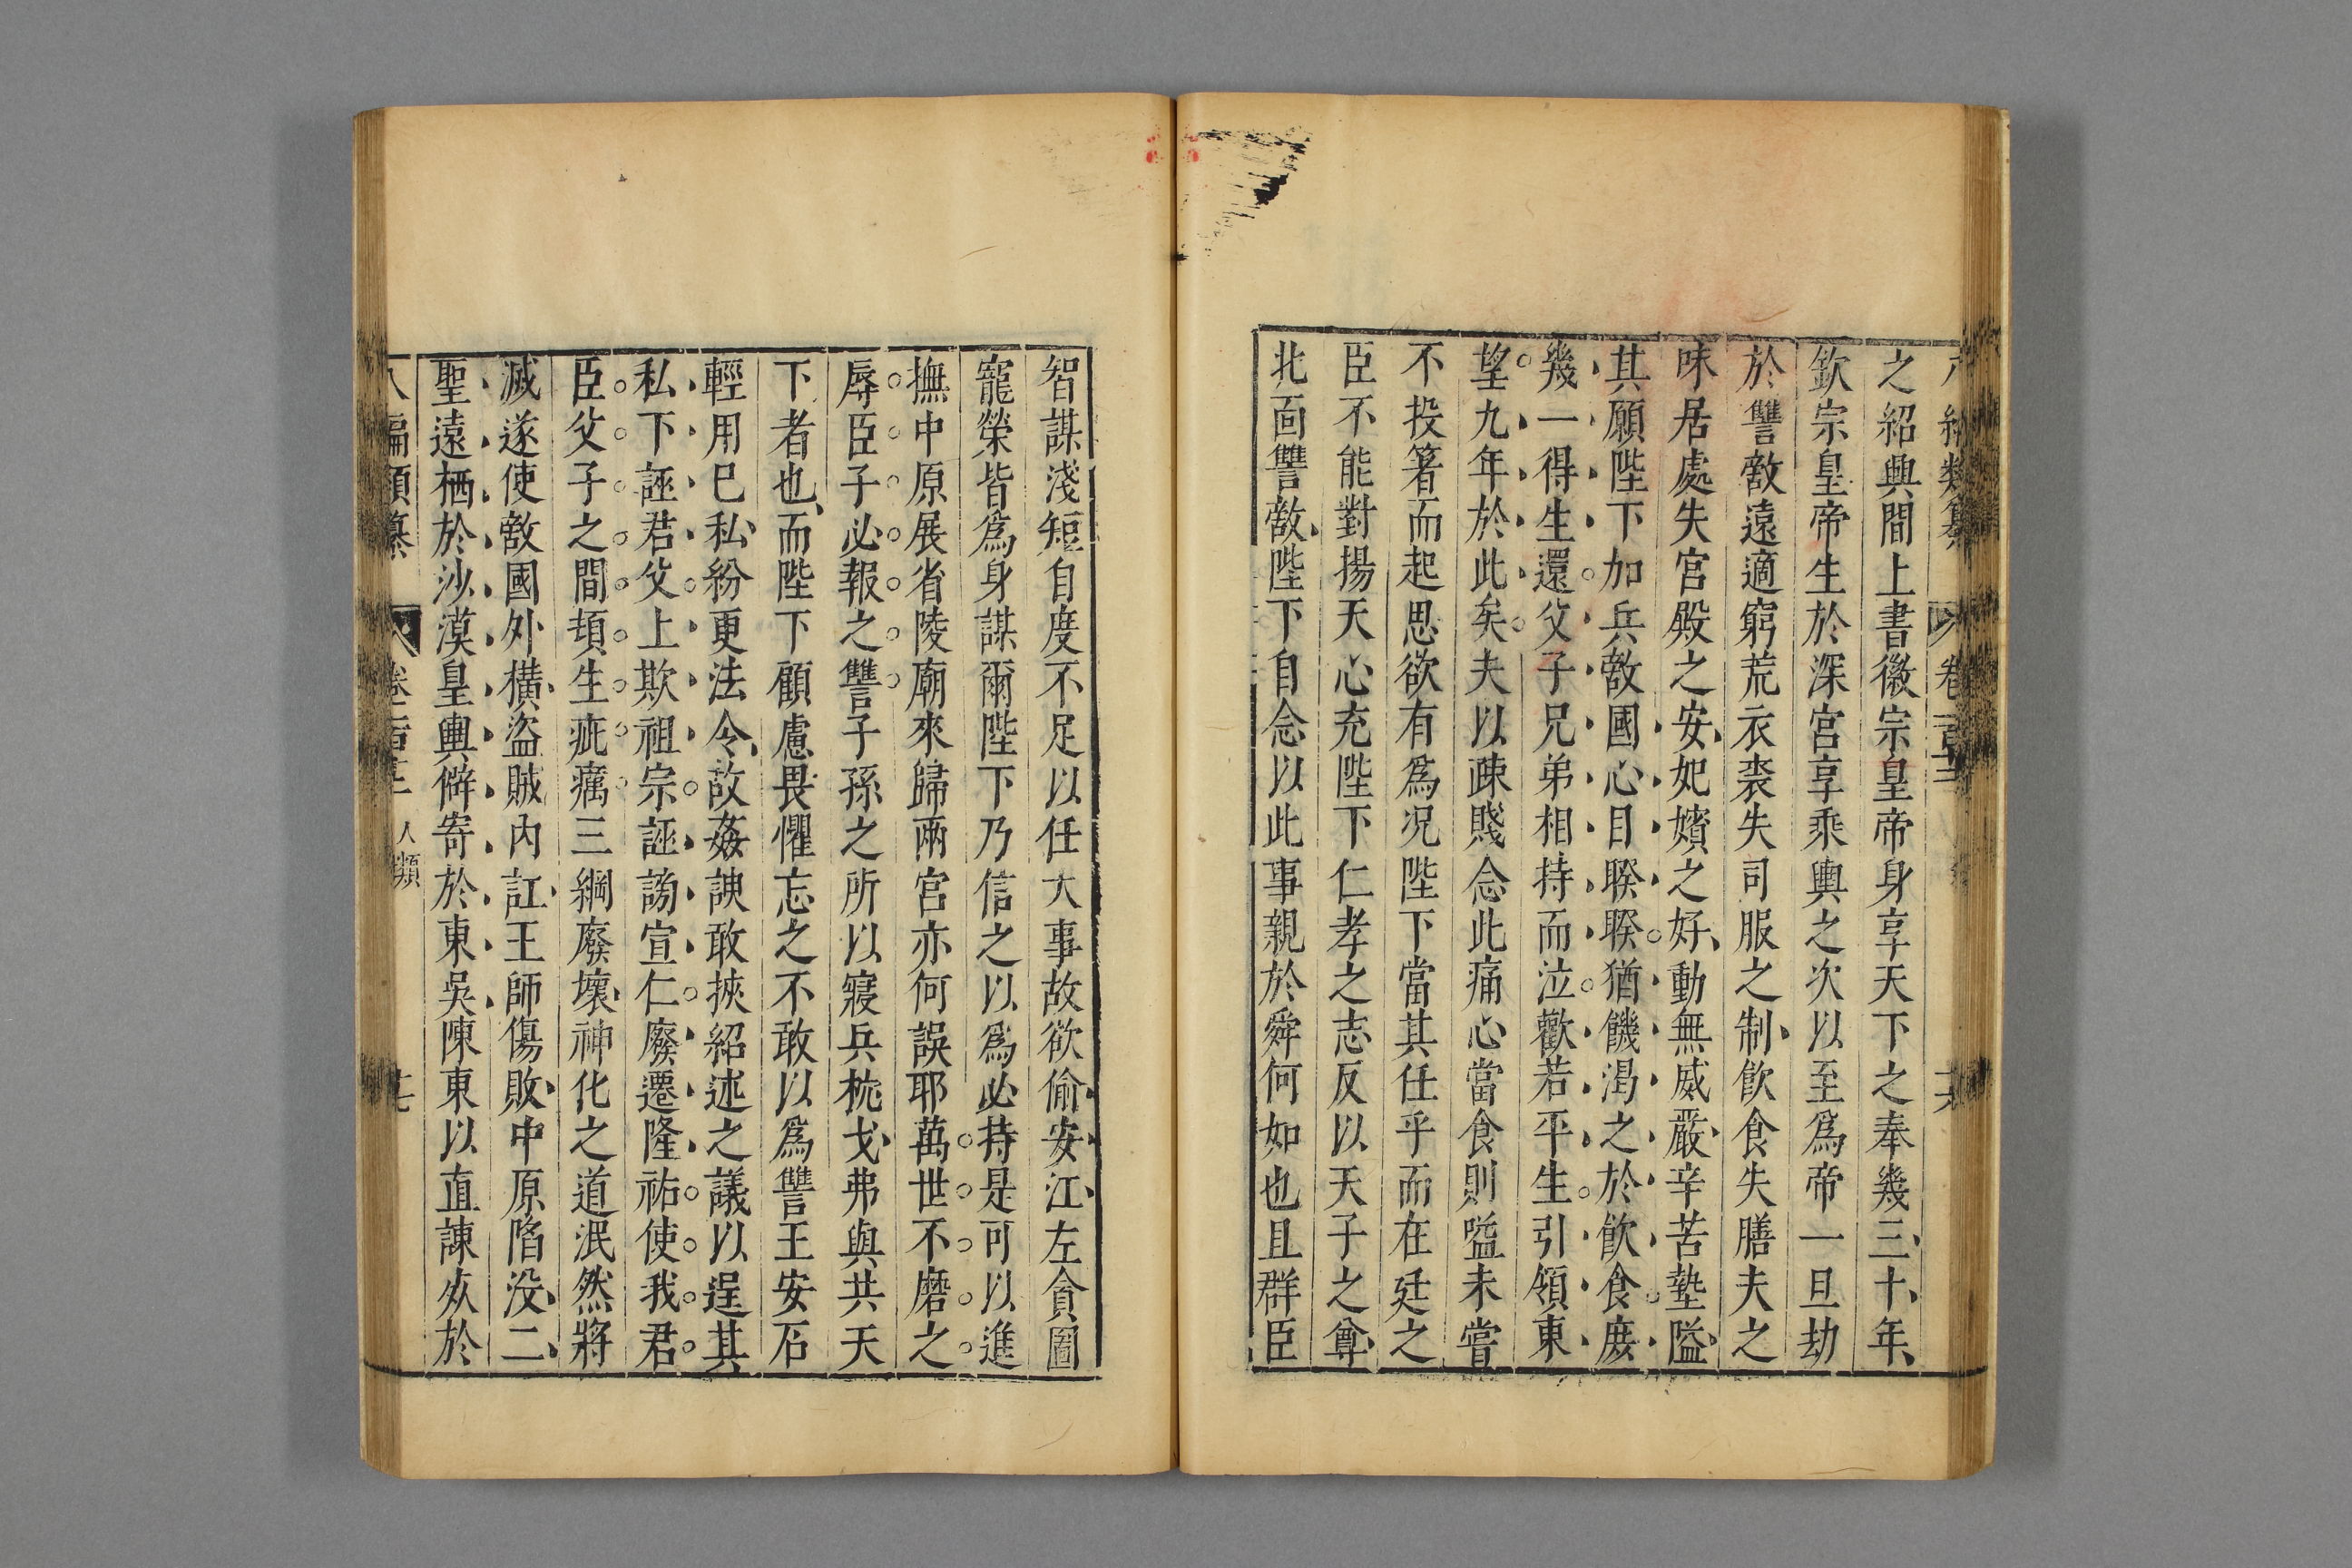 編類纂 卷百 十六
之紹興間上書徽宗皇帝身享天下之奉幾三十年
欽宗皇帝生於深宮享乘輿之次以至爲帝一旦劫
於讐敵遠適窮荒衣裘失司服之制飲食失膳夫之
味居處失宮殿之安妃嬪之好動無威嚴辛苦墊隘
其願陛下加兵敵國心目睽睽猶饑渴之於飲食庶
幾一得生還父子兄弟相持而泣歡若平生引領東
望九年於此矣夫以疎賤念此痛心當食則嗌未嘗
不投箸而起思欲有爲况陛下當其任乎而在廷之
臣不能對揚天心充陛下仁孝之志反以天子之尊
北面讐敵陛下自念以此事親於舜何如也且群臣
智謀淺短自度不足以任大事故欲偷安江左貪圖
寵榮皆爲身謀爾陛下乃信之以爲必持是可以進
撫中原展省陵廟來歸兩宮亦何誤耶萬世不磨之
辱臣子必報之讐子孫之所以寢兵枕戈弗與共天
下者也而陛下顧慮畏懼忘之不敢以爲讐王安石
輕用已私紛更法令故姦諛敢挾紹述之議以逞其
私下誣君父上欺祖宗誣謗宣仁廢遷隆祐使我君
臣父子之間頓生疵癘三綱廢壞神化之道泯然將
滅遂使敵國外橫盜賊內訌王師傷敗中原陷没二
聖遠栖於沙漠皇輿僻寄於東吳陳東以直諫㱙於
八編類纂 卷百 人類 十七